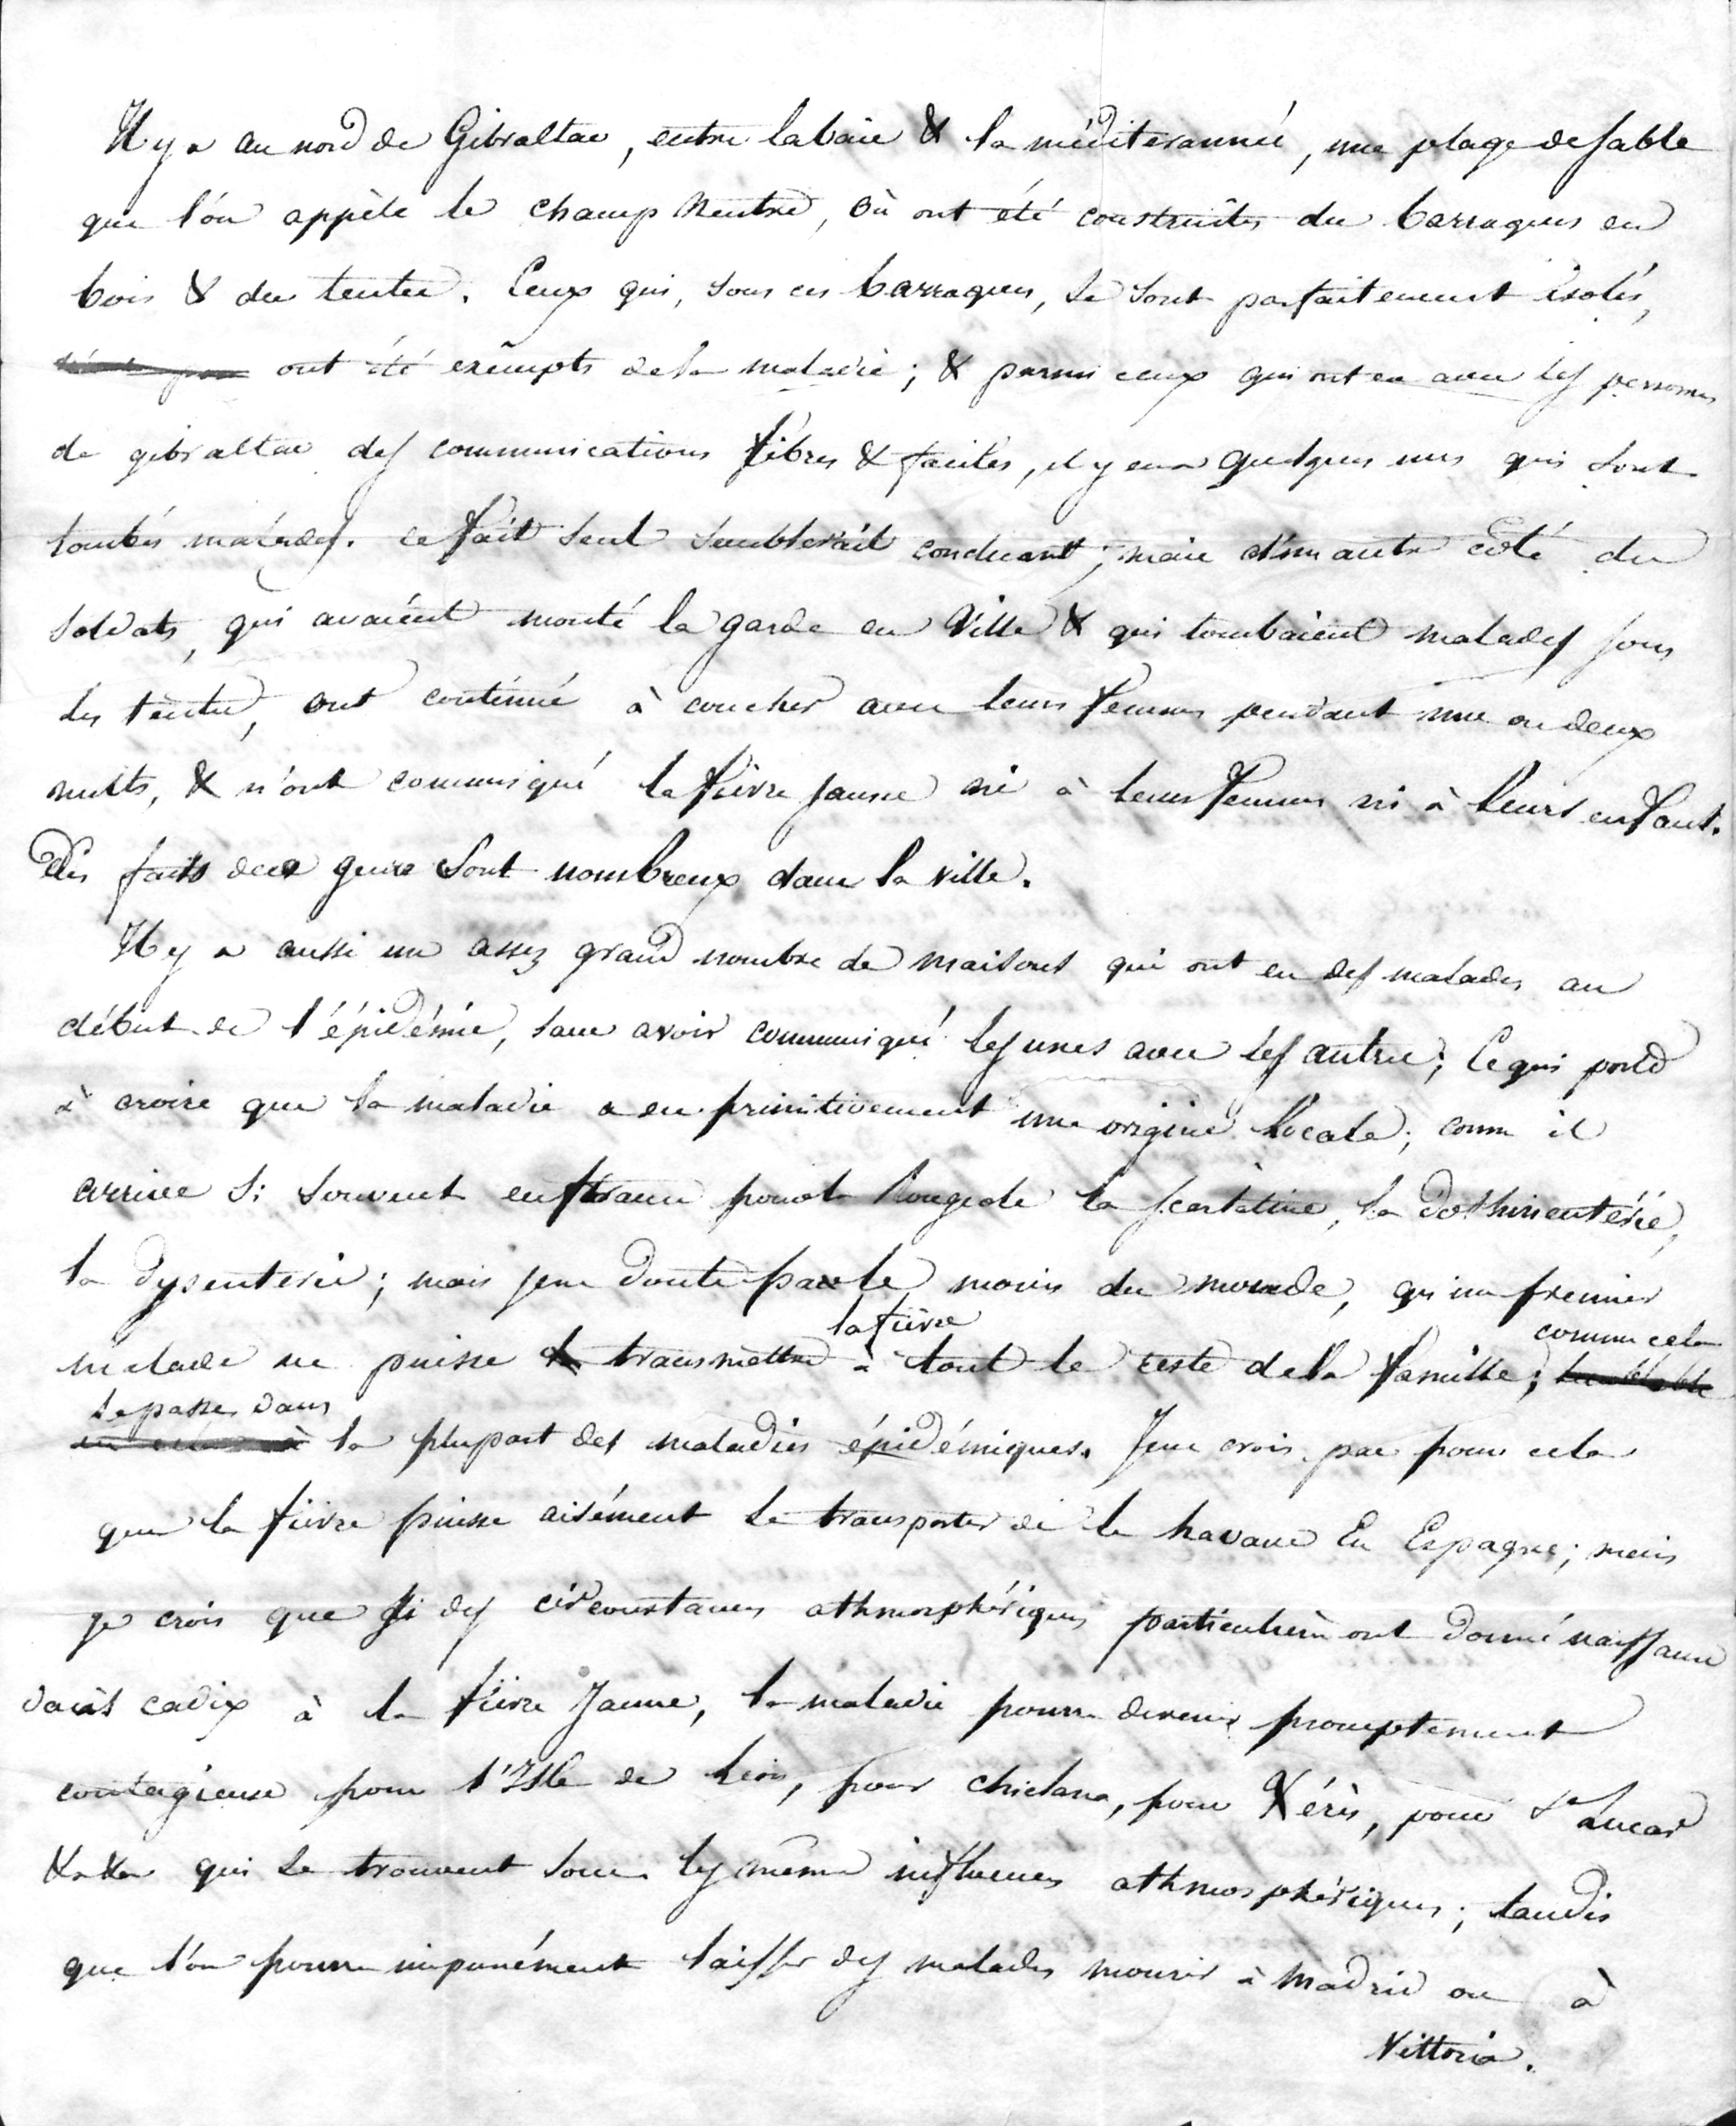 Il y a au nord de Gibraltar, entre la baie & la méditerannée, une plage de sable
que l'on appèle le champ Neutre, où ont été construites des barraques en
bois & des tentes. Ceux qui, sous ces barraques, se sont parfaitement isolés,
ont été exempts de la maladie; & parmi ceux qui ont eu avec les personnes
de gibraltar des communications libres & faciles, il y en a quelques uns qui sont
tombés malades. ce fait seul semblerait concluant; mais d'un autre coté des
soldats, qui avaient monté la garde en Ville & qui tombaient malades sous
les tentes, ont continué à coucher avec leurs femmes pendant une ou deux
nuits, & n'ont communiqué la fièvre jaune ni à leurs femmes ni à leurs enfants.
Des faits de ce genre sont nombreux dans la ville.
Il y a aussi un assez grand nombre de maisons qui ont eu des malades au
début de l'épidémie, sans avoir communiqué les unes avec les autres; Ce qui porte
à croire que la maladie a eu primitivement une origine locale; comm il
arrive si souvent en france pour la rougeole la scarlatine, la dothinentérie,
la dysenterie; mais je ne doute pas le moins du monde, qu'un premier
malade ne puisse transmettre la fièvre à tout le reste de la famille; comme cela
se passe dans la plupart des maladies épidémiques. Je ne crois pas pour cela
que la fièvre puisse aisément se transporter de la havane En Espagne; mais
je crois que si des circonstances athmosphériques particulières ont donné naissance
dans cadix à la fièvre Jaune, la maladie pourra devenir promptement
contagieuse pour l'Isle de Léon, pour chiclana, pour Xérès, pour St Lucar
&a &a qui se trouvent sous les mêmes influences athmosphériques; tandis
que l'on pourra impunément laisser des malades mourir à Madrid ou à
Vittoria.